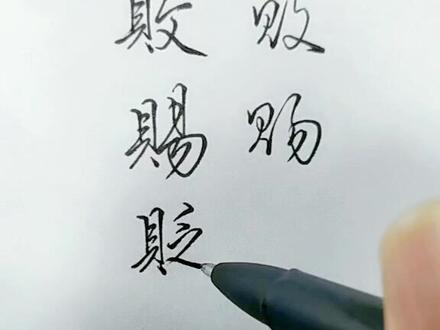 敗 败
賜 赐
貶